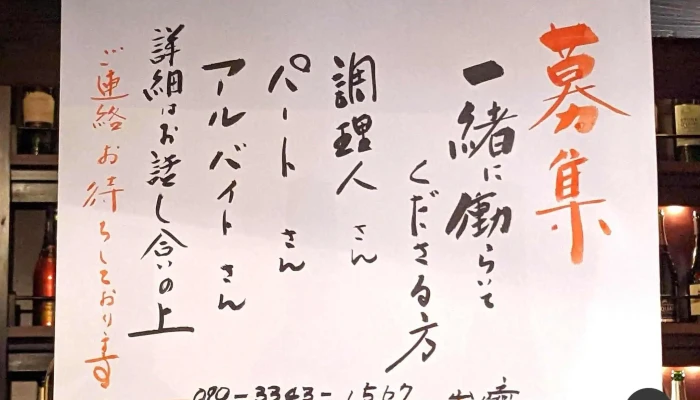 募集
一緒に働らいて
くださる方
調理人さん
パートさん
アルバイトさん
詳細はお話し合いの上
ご連絡お待ちしております
090-3343-1567